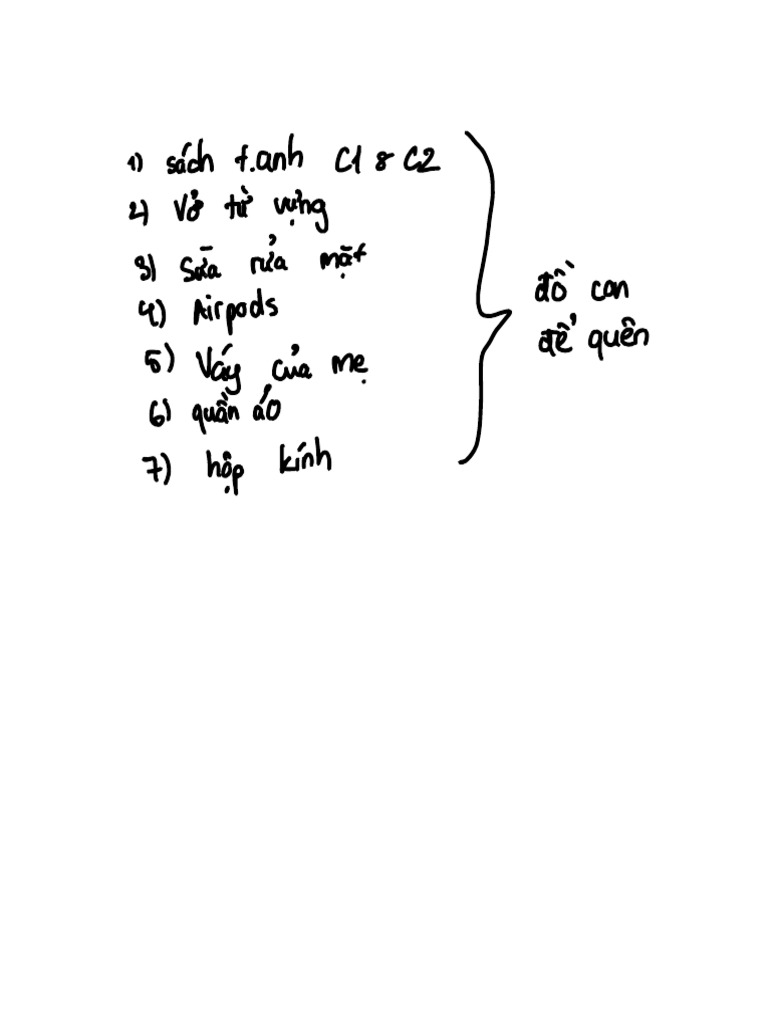 1) sách t.anh C1 & C2
2) Vở từ vựng
3) Sữa rửa mặt
4) Airpods
5) Váy của mẹ
6) quần áo
7) hộp kính
đồ con
để quên